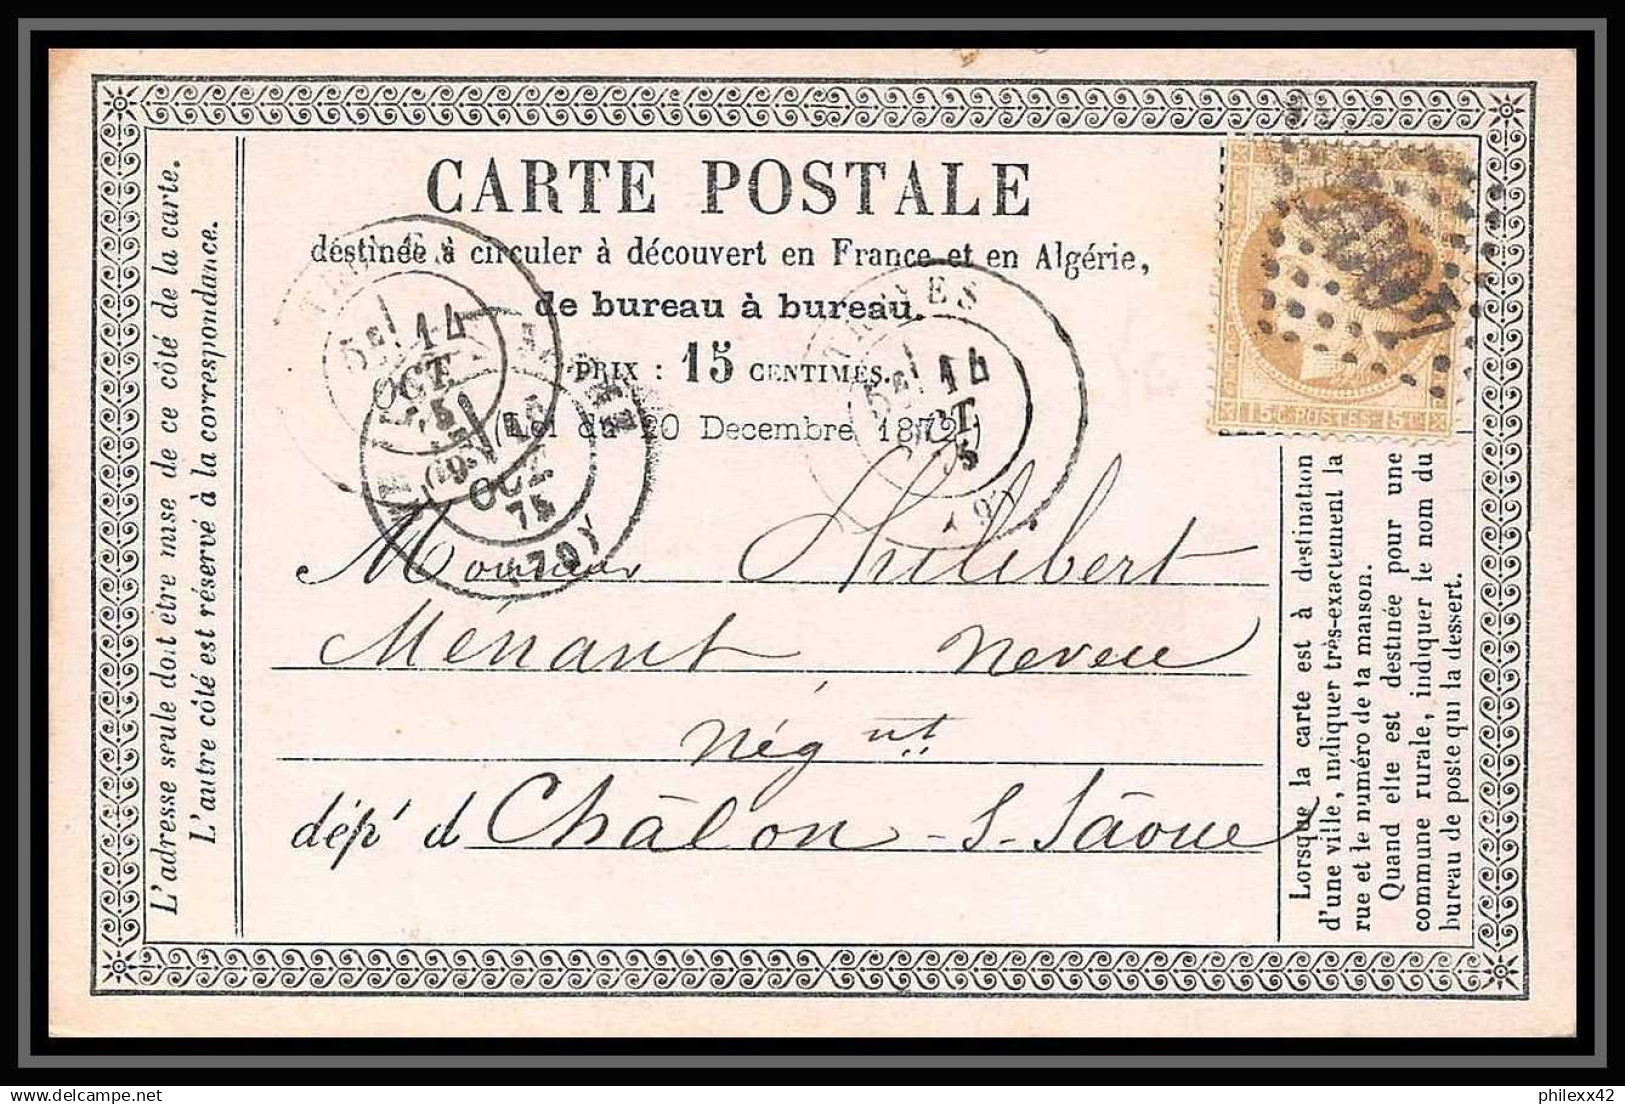 CARTE POSTALE
destinée à circuler à découvert en France et en Algérie,
de bureau à bureau.
PRIX : 15 CENTIMES.
(Loi du 20 Decembre 1872)
Monsieur Philibert
Ménant, neveu
Nég nt
dépt d Châlon-S-Sâone
L'adresse seule doit être mise de ce côté de la carte.
L'autre côté est réservé à la correspondance.
Lorsque la carte est à destination
d'une ville, indiquer très-exactement la
rue et le numéro de la maison.
Quand elle est destinée pour une
commune rurale, indiquer le nom du
bureau de poste qui la dessert.
15 C. POSTES 15 C.
TROYES
14
OCT.
75
TROYES
14
OCT.
75
OCT.
75
(70)
philexx42